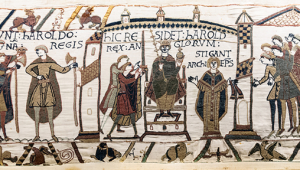 UNT: hAROLDO
NA: REGIS
hICRE SIDET: hAROLD
REX: AN GLORVM:
STIGANT
ARChI EPS